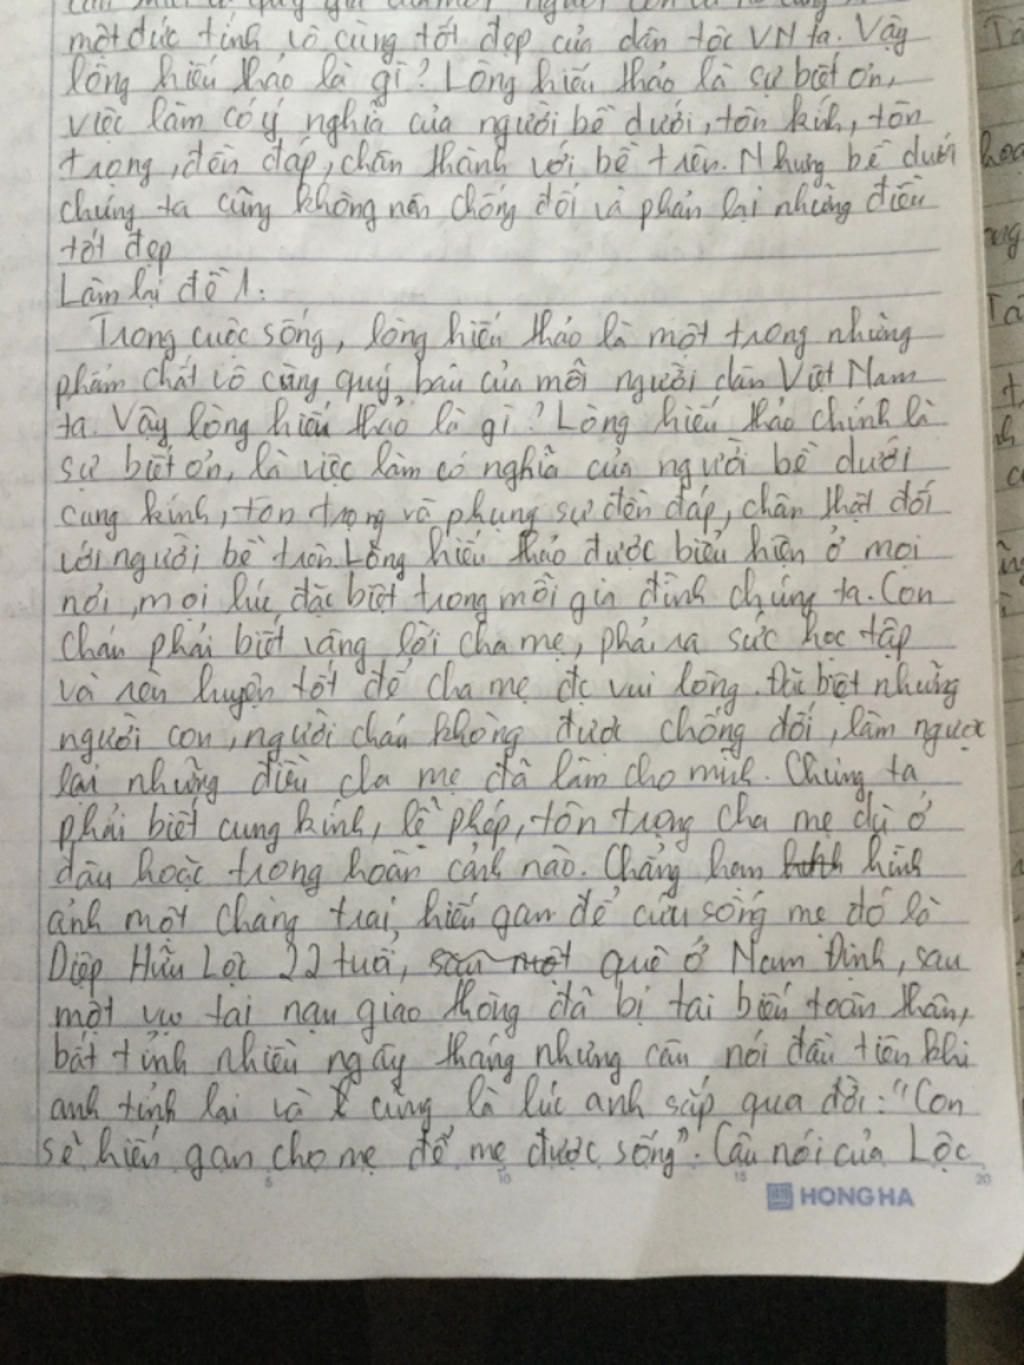 một đức tính vô cùng tốt đẹp của dân tộc VN ta. Vậy
lòng hiếu thảo là gì? Lòng hiếu thảo là sự biết ơn,
việc làm có ý nghĩa của người bề dưới, tôn kính, tôn
trọng, đền đáp, chân thành với bề trên. Nhưng bề dưới
chúng ta cũng không nên chống đối và phản lại những điều
tốt đẹp
Làm lại đề 1:
Trong cuộc sống, lòng hiếu thảo là một trong những
phẩm chất vô cùng quý báu của mỗi người dân Việt Nam
ta. Vậy lòng hiếu thảo là gì? Lòng hiếu thảo chính là
sự biết ơn, là việc làm có nghĩa của người bề dưới
cung kính, tôn trọng và phụng sự đền đáp, chân thật đối
với người bề trên. Lòng hiếu thảo được biểu hiện ở mọi
nơi, mọi lúc, đặc biệt trong mỗi gia đình chúng ta. Con
cháu phải biết vâng lời cha mẹ, phải ra sức học tập
và rèn luyện tốt để cha mẹ đc vui lòng. Đặc biệt những
người con, người cháu không được chống đối, làm ngược
lại những điều cha mẹ đã làm cho mình. Chúng ta
phải biết cung kính, lễ phép, tôn trọng cha mẹ dù ở
đâu hoặc trong hoàn cảnh nào. Chẳng hạn hình
ảnh một chàng trai, hiến gan để cứu sống mẹ đó là
Diệp Hữu Lộc 22 tuổi, quê ở Nam Định, sau
một vụ tai nạn giao thông đã bị tai biến toàn thân,
bất tỉnh nhiều ngày tháng nhưng câu nói đầu tiên khi
anh tỉnh lại và cũng là lúc anh sắp qua đời: "Con
sẽ hiến gan cho mẹ để mẹ được sống". Câu nói của Lộc
5 10 15 20
HONG HA